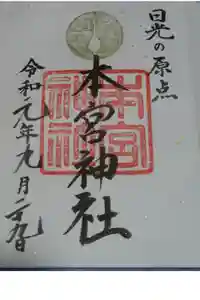 日光の原点
本宮神社
令和元年九月二九日
本宮
神社